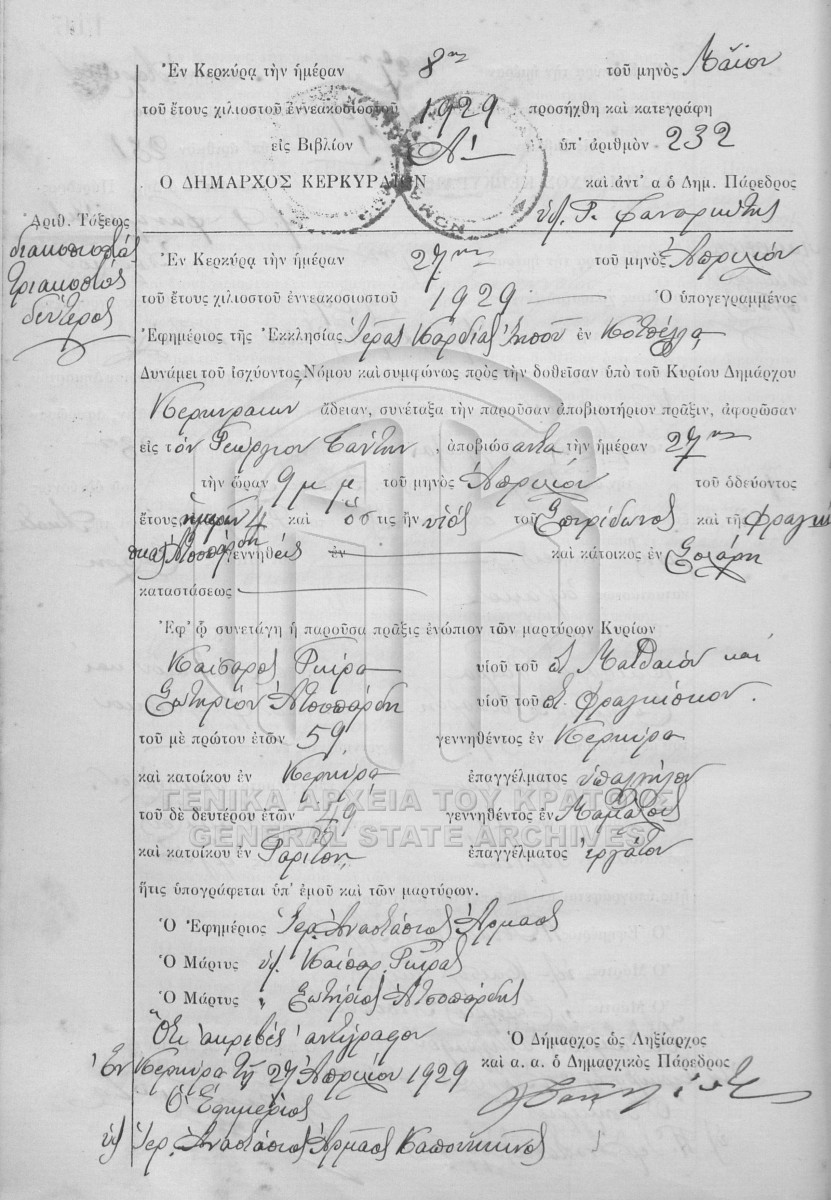 Ἐν Κερκύρᾳ τὴν ἡμέραν 8ην τοῦ μηνὸς Μαΐου
τοῦ ἔτους χιλιοστοῦ ἐννεακοσιοστοῦ 1929 προσήχθη καὶ κατεγράφη
εἰς Βιβλίον Α' ὑπ' ἀριθμὸν 232
Ο ΔΗΜΑΡΧΟΣ ΚΕΡΚΥΡΑΙΩΝ καὶ ἀντ' α ὁ Δημ. Πάρεδρος
Ἀριθ. Τάξεως
διακοσιοστός
τριακοστός
δεύτερος
Ἐν Κερκύρᾳ τὴν ἡμέραν 27ην τοῦ μηνὸς Ἀπριλίου
τοῦ ἔτους χιλιοστοῦ ἐννεακοσιοστοῦ 1929 Ὁ ὑπογεγραμμένος
Ἐφημέριος τῆς Ἐκκλησίας Ἱερᾶς Καρδίας Ἰησοῦ ἐν Κοτσέλλᾳ
Δυνάμει τοῦ ἰσχύοντος Νόμου καὶ συμφώνως πρὸς τὴν δοθεῖσαν ὑπὸ τοῦ Κυρίου Δημάρχου
Κερκυραίων ἄδειαν, συνέταξα τὴν παροῦσαν ἀποβιωτήριον πρᾶξιν, ἀφορῶσαν
εἰς τὸν Γεώργιον , ἀποβιώσαντα τὴν ἡμέραν 27ην
τὴν ὥραν 9 μ μ τοῦ μηνὸς Ἀπριλίου τοῦ ὁδεύοντος
ἔτους, ἡμερῶν 4 καὶ ὅστις ἦν υἱός τοῦ Σπυρίδωνος καὶ τῆς Φραγκί
σκας γεννηθείς ἐν καὶ κάτοικος ἐν
καταστάσεως
Ἐφ' ᾧ συνετάγη ἡ παροῦσα πρᾶξις ἐνώπιον τῶν μαρτύρων Κυρίων
Καίσαρος υἱοῦ τοῦ Ματθαίου καὶ
Σωτηρίου Ἀτσοπάρδη υἱοῦ τοῦ Φραγκίσκου.
τοῦ μὲ πρώτου ἐτῶν 59 γεννηθέντος ἐν Κερκύρᾳ
καὶ κατοίκου ἐν Κερκύρᾳ ἐπαγγέλματος ὑπαλλήλου
ΓΕΝΙΚΑ ΑΡΧΕΙΑ ΤΟΥ ΚΡΑΤΟΥΣ
τοῦ δὲ δευτέρου ἐτῶν 49 γεννηθέντος ἐν
GENERAL STATE ARCHIVES
καὶ κατοίκου ἐν Γαρίτσῃ ἐπαγγέλματος ἐργάτου
ἥτις ὑπογράφεται ὑπ' ἐμοῦ καὶ τῶν μαρτύρων.
Ὁ Ἐφημέριος Ἱερ. Ἀναστάσιος Ἀρμάος
Ὁ Μάρτυς
Ὁ Μάρτυς " Σωτήριος Ἀτσοπάρδης
Ὅτι ἀκριβές ἀντίγραφον Ὁ Δήμαρχος ὡς Ληξίαρχος
Ἐν Κερκύρᾳ τῇ 27 Ἀπριλίου 1929 καὶ α. α. ὁ Δημαρχικὸς Πάρεδρος
Ὁ Ἐφημέριος
Ἱερ. Ἀναστάσιος Ἀρμάος Καπουκῖνος